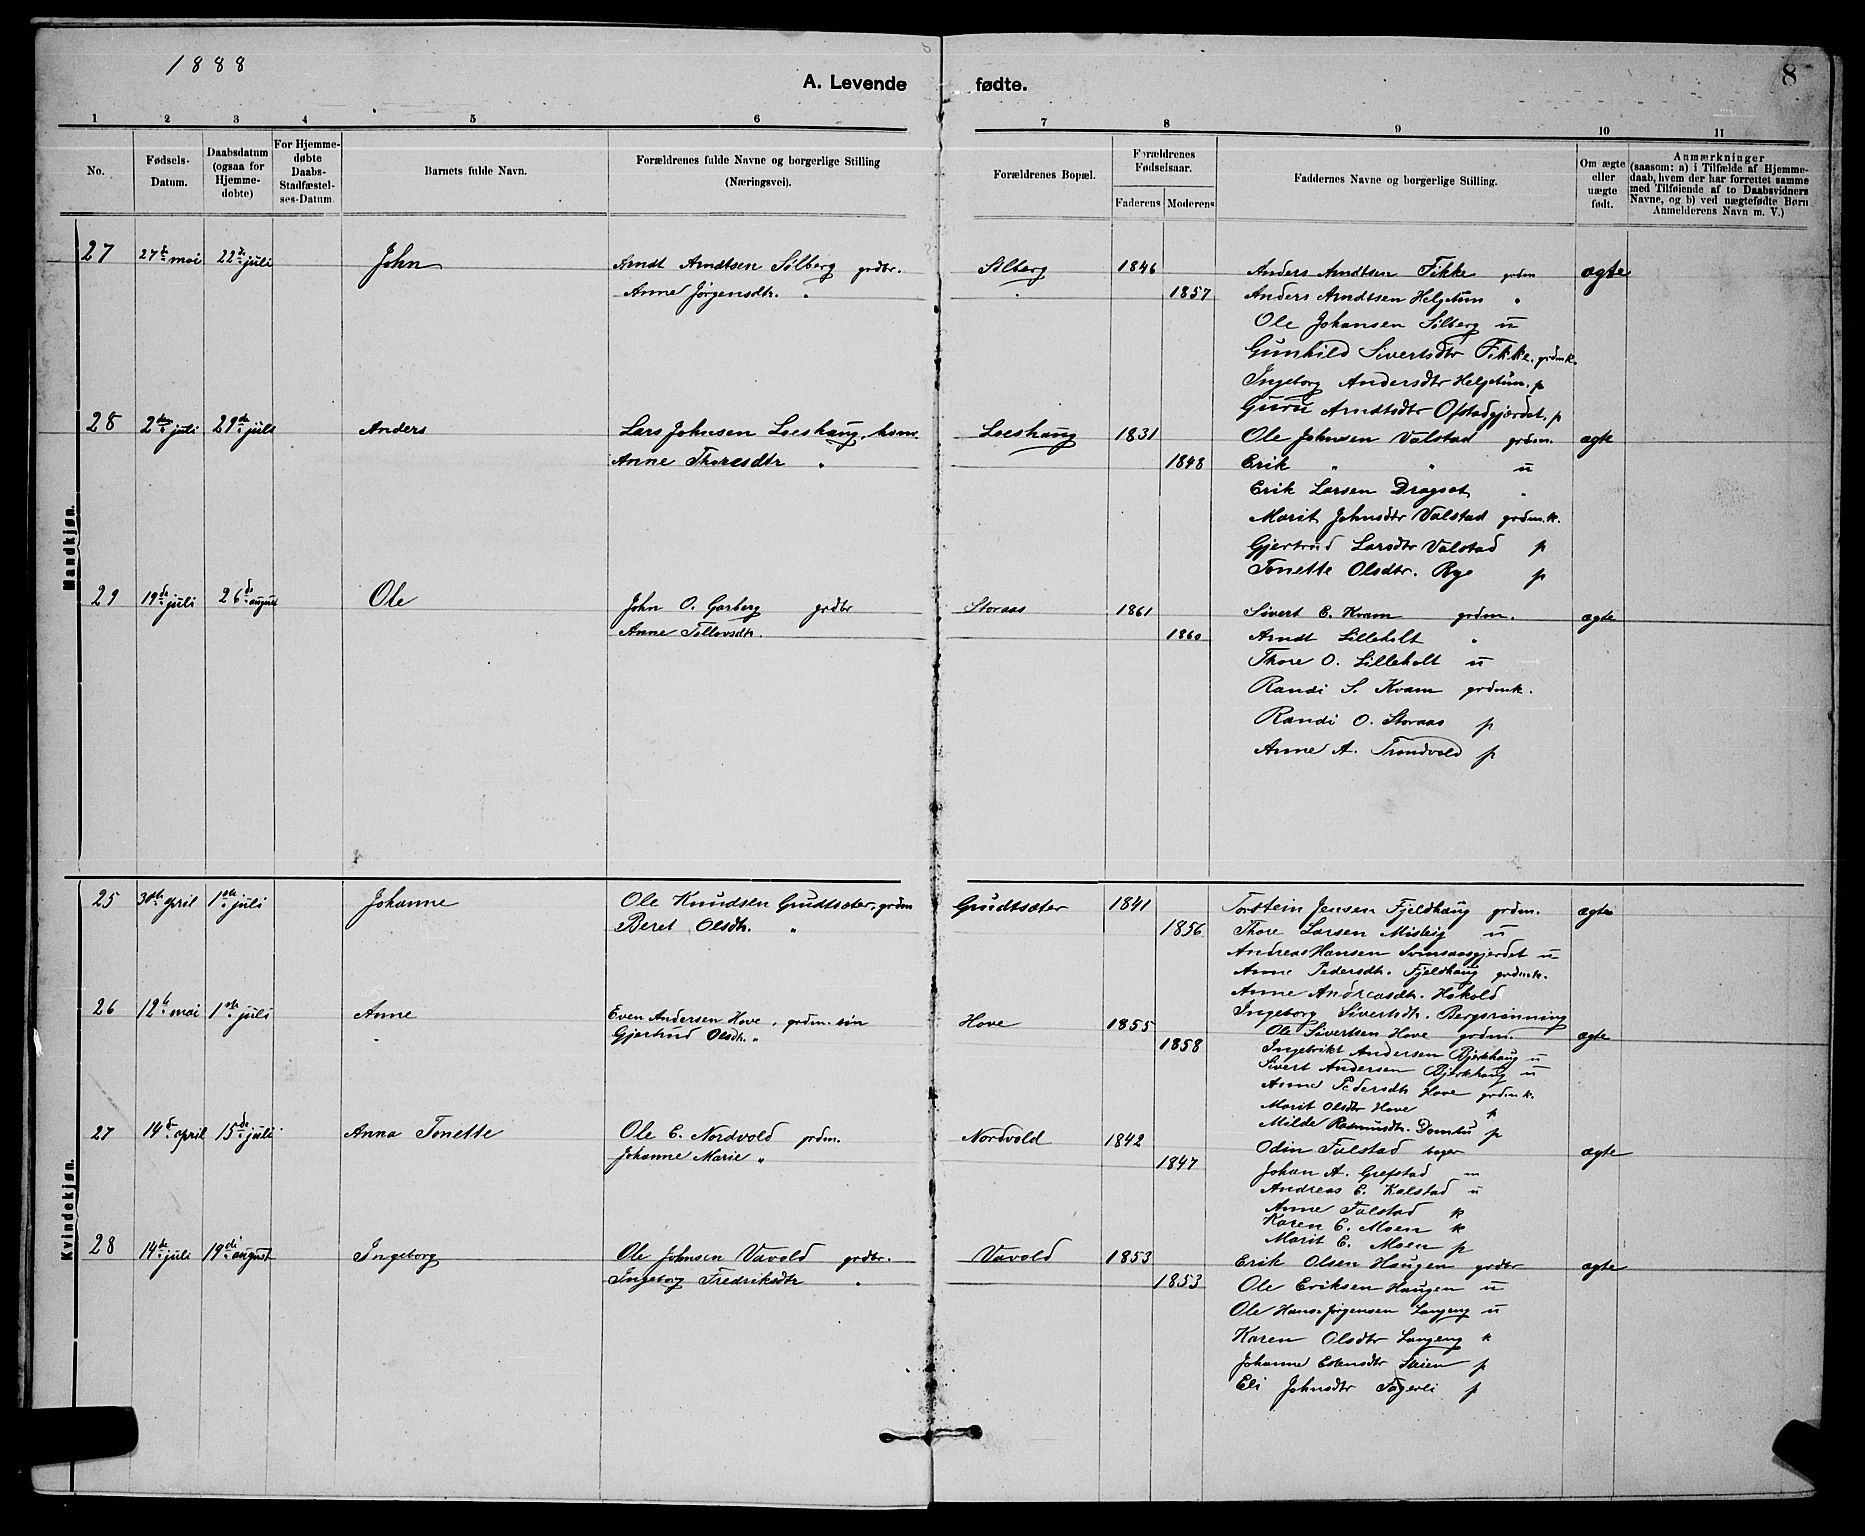 1888
8
A. Levende fødte.
1 2 3 4 5 6 7 8 9 10 11
No.
Fødsels-
Datum.
Daabsdatum
(ogsaa for
Hjemme-
døbte)
For Hjemme-
døbte
Daabs-
Stadfæstel-
ses-Datum.
Barnets fulde Navn.
Forældrenes fulde Navne og borgerlige Stilling
(Næringsvei).
Forældrenes Bopæl.
Forældrenes
Fødselsaar.
Faderens Moderens
Faddernes Navne og borgerlige Stilling.
Om ægte
eller
uægte
født.
Anmærkninger
(saasom: a) i Tilfælde af Hjemme-
daab, hvem der har forrettet samme
med Tilføiende af to Daabsvidners
Navne, og b) ved uægtefødte Børn
Anmelderens Navn m. V.)
Mandkjøn.
27 27de mai 22de juli John Arndt Arndtsen Sølberg grdbr. Sølberg 1846 Anders Arndtsen Fikke grdm ægte
Anne Jørgensdtr. " " 1857 Anders Arndtsen Helgetun "
Ole Johansen Sølberg u
Gunhild Sivertsdtr Fikke. grdmk.
Ingeborg Andersdtr Helgetun. p
Guru Arndtsdtr Ofstadgjerdet. p
28 2den juli 29de juli Anders Lars Johnsen Loeshaug, husm. Loeshaug 1831 Ole Johnsen Valstad grdm. ægte
Anne Thoresdtr " 1848 Erik " " u
Erik Larsen Dragset "
Marit Johnsdtr Valstad grdm.k.
Gjertrud Larsdtr Valstad p
Tonette Olsdtr. Rye p
29 19de juli 26de august Ole John O. Garberg grdbr Storaas 1861 Sivert E. Kvam grdm. ægte
Anne Tollovsdtr. 1860 Arndt Lilleholt "
Thore O. Lilleholt u
Randi S. Kvam grdmk.
Randi O. Storaas p
Anne A. Trondvold p
Kvindekjøn.
25 30de april 1ste juli Johanne Ole Knudsen Grudtsæter, grdm Grudtsæter 1841 Torstein Jensen Fjeldhaug grdm. ægte
Beret Olsdtr. " 1856 Thore Larsen Misleig u
Andreas Hansen Svinsaasgjerdet u
Anne Pedersdtr. Fjeldhaug grdmk.
Anne Andreasdtr. Hokold
Ingeborg Sivertsdtr. Bergsrønning
26 12te mai 1ste juli Anne Even Andersen Hove, grdm. søn Hove 1855 Ole Sivertsen Hove grdm. ægte
Gjertrud Olsdtr. " 1858 Ingebrikt Andersen Bjerkhaug u
Sivert Andersen Bjerkhaug u
Anne Pedersdtr Hove grdmk.
Marit Olsdtr Hove p
Milda Rasmusdtr. Domtu p
27 14de april 15de juli Anna Tonette Ole E. Nordvold grdm. Nordvold 1842 Odin Falstad bager ægte
Johanne Marie " 1847 Johan A. Grefstad m
Andreas E. Kalstad u
Anne Falstad k
Karen E. Moen k
Marit E. Moen p
28 14de juli 19de august Ingeborg Ole Johnsen Vavold grdbr. Vavold 1853 Erik Olsen Haugen grdbr ægte
Ingeborg Fredriksdtr " 1853 Ole Eriksen Haugen u
Ole Hans-Jørgensen Langeng u
Karen Olsdtr Langeng k
Johanne Estensdtr p
Eli Johnsdtr Fagerli p